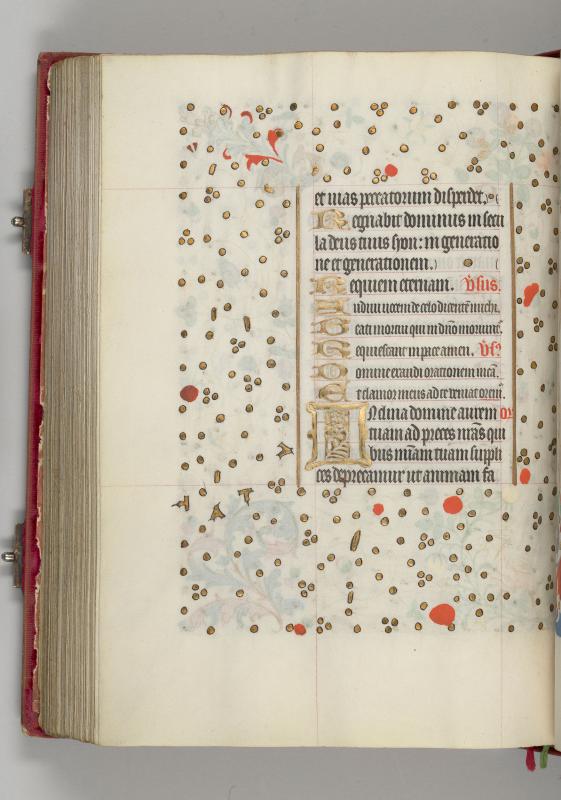 et vias peccatorum disperdet.
Regnabit dominus in secu
la deus tuus syon: in generatio
ne et generationem.
Requiem eternam. v̄sus.
Audivi vocem de celo dicentē michi.
Beati mortui qui in dn̄o moriunt᷑.
Requiescant in pace amen. v̄s᷑
Domine exaudi orationem meā.
Et clamor meus ad te veniat oremꝰ.
INclina domine aurem or
tuam ad preces nr̄as qui
bus mīam tuam suppli
ces deprecamur ut animam fa